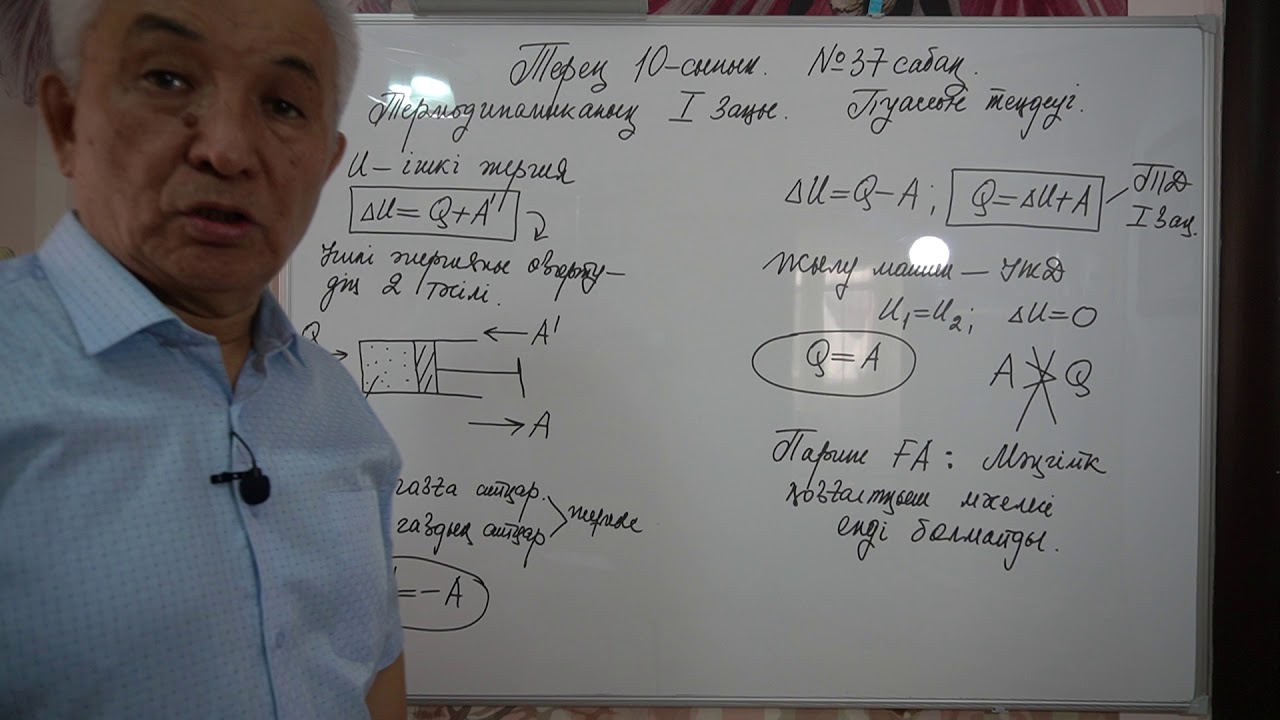 Терең 10-сынып. №37 сабақ.
Термодинамиканың I Заңы. Пуассон теңдеуі.
U – ішкі энергия
ΔU = Q + A'
Ішкі энергияны өзгерту–
дің 2 тәсілі.
Q
A'
A
газға атқар.
газдың атқар
жұмыс
= – A
ΔU = Q – A; Q = ΔU + A
ТД
I Заң.
Жылу машин – ІЖД
U₁ = U₂; ΔU = 0
Q = A
A Q
Париж FA: Мәңгілік
қозғалтқыш мәселесі
енді болмайды.